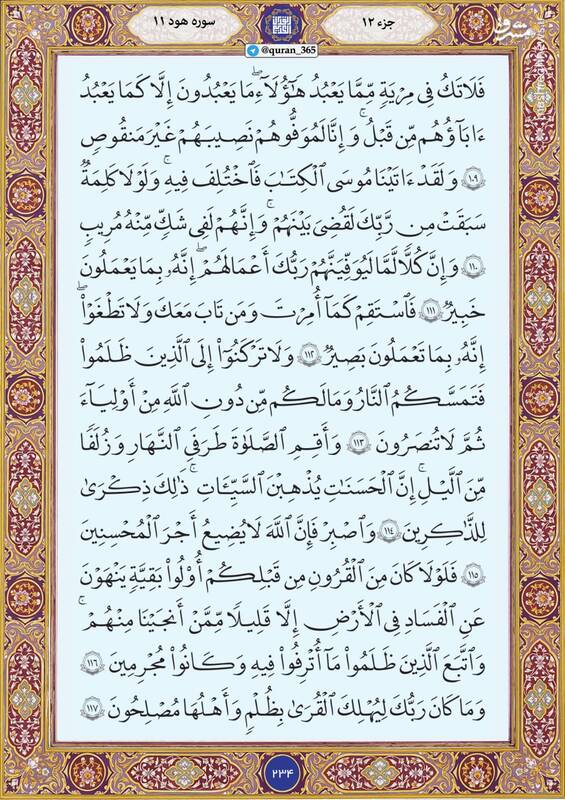 سوره هود ۱۱
جزء ۱۲
@quran_365
فَلَا تَكُ فِى مِرْيَةٍ مِّمَّا يَعْبُدُ هَٰٓؤُلَآءِ ۚ مَا يَعْبُدُونَ إِلَّا كَمَا يَعْبُدُ
ءَابَآؤُهُم مِّن قَبْلُ ۚ وَإِنَّا لَمُوَفُّوهُمْ نَصِيبَهُمْ غَيْرَ مَنقُوصٍ
۱۰۹ وَلَقَدْ ءَاتَيْنَا مُوسَى ٱلْكِتَٰبَ فَٱخْتُلِفَ فِيهِ ۚ وَلَوْلَا كَلِمَةٌ
سَبَقَتْ مِن رَّبِّكَ لَقُضِىَ بَيْنَهُمْ ۚ وَإِنَّهُمْ لَفِى شَكٍّ مِّنْهُ مُرِيبٍ
۱۱۰ وَإِنَّ كُلًّا لَّمَّا لَيُوَفِّيَنَّهُمْ رَبُّكَ أَعْمَالَهُمْ ۚ إِنَّهُۥ بِمَا يَعْمَلُونَ
خَبِيرٌ ۱۱۱ فَٱسْتَقِمْ كَمَآ أُمِرْتَ وَمَن تَابَ مَعَكَ وَلَا تَطْغَوْا۟ ۚ
إِنَّهُۥ بِمَا تَعْمَلُونَ بَصِيرٌ ۱۱۲ وَلَا تَرْكَنُوٓا۟ إِلَى ٱلَّذِينَ ظَلَمُوا۟
فَتَمَسَّكُمُ ٱلنَّارُ وَمَا لَكُم مِّن دُونِ ٱللَّهِ مِنْ أَوْلِيَآءَ
ثُمَّ لَا تُنصَرُونَ ۱۱۳ وَأَقِمِ ٱلصَّلَوٰةَ طَرَفَىِ ٱلنَّهَارِ وَزُلَفًا
مِّنَ ٱلَّيْلِ ۚ إِنَّ ٱلْحَسَنَٰتِ يُذْهِبْنَ ٱلسَّيِّـَٔاتِ ۚ ذَٰلِكَ ذِكْرَىٰ
لِلذَّٰكِرِينَ ۱۱٤ وَٱصْبِرْ فَإِنَّ ٱللَّهَ لَا يُضِيعُ أَجْرَ ٱلْمُحْسِنِينَ
۱۱۵ فَلَوْلَا كَانَ مِنَ ٱلْقُرُونِ مِن قَبْلِكُمْ أُو۟لُوا۟ بَقِيَّةٍ يَنْهَوْنَ
عَنِ ٱلْفَسَادِ فِى ٱلْأَرْضِ إِلَّا قَلِيلًا مِّمَّنْ أَنجَيْنَا مِنْهُمْ ۗ
وَٱتَّبَعَ ٱلَّذِينَ ظَلَمُوا۟ مَآ أُتْرِفُوا۟ فِيهِ وَكَانُوا۟ مُجْرِمِينَ ۱۱۶
وَمَا كَانَ رَبُّكَ لِيُهْلِكَ ٱلْقُرَىٰ بِظُلْمٍ وَأَهْلُهَا مُصْلِحُونَ ۱۱۷
۲۳۴